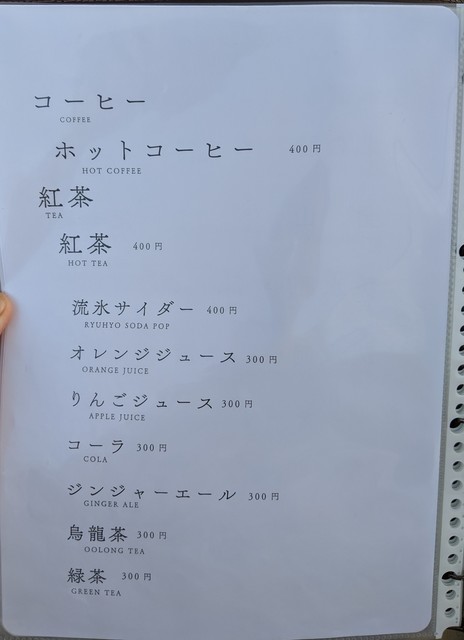 コーヒー
COFFEE
ホットコーヒー 400円
HOT COFFEE
紅茶
TEA
紅茶 400円
HOT TEA
流氷サイダー 400円
RYUHYO SODA POP
オレンジジュース 300円
ORANGE JUICE
りんごジュース 300円
APPLE JUICE
コーラ 300円
COLA
ジンジャーエール 300円
GINGER ALE
烏龍茶 300円
OOLONG TEA
緑茶 300円
GREEN TEA